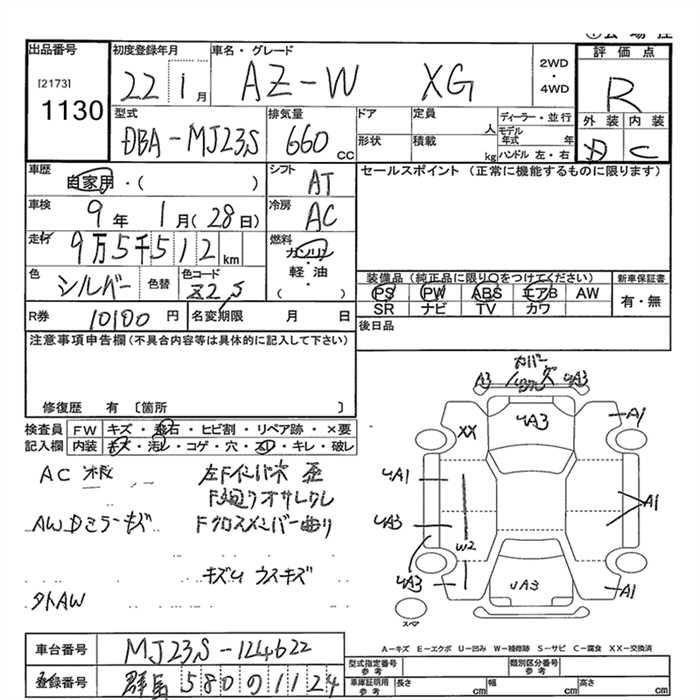 出品番号
[2173]
1130
初度登録年月
22 1月
車名・グレード
AZ-W XG
2WD
・
4WD
評価点
R
外装 内装
D C
型式
DBA-MJ23S
排気量
660
cc
ドア
定員
人
形状
積載
kg
ディーラー・並行
モデル
年式 年
ハンドル 左・右
車歴
自家用・( )
シフト
AT
車検
9年 1月(28日)
冷房
AC
走行
9万5千512
km
燃料
ガソリン
・
軽・油
( )
色
シルバー
色替
色コード
Z2S
R券
10100 円
名変期限 月 日
セールスポイント (正常に機能するものに限ります)
装備品(純正品に限り○をつけてください)
PS PW ABS エアB AW
SR ナビ TV カワ
新車保証書
有・無
後日品
注意事項申告欄(不具合内容等は具体的に記入して下さい)
修復歴 有 〔箇所 〕
検査員
記入欄
FW キズ・飛石・ヒビ割・リペア跡・×要
内装 キズ・汚レ・コゲ・穴・スレ・キレ・破レ
左Fインパネ
F廻りオサレクレ
AW Dミラーキズ
Fクロスメンバー曲り
キズU ウスキズ
タトAW
カバー
A3
XX
UA3
A1
UA1
UA3
A1
W2
UA3
UA3
A1
スペア
A-キズ E-エクボ U-凹み W-補修跡 S-サビ C-腐食 XX-交換済
車台番号
MJ23S-124622
登録番号
群馬 580 の 1124
型式指定番号
参考
類別区分番号
参考
車庫証明用
参考
長さ cm
幅 cm
高さ cm